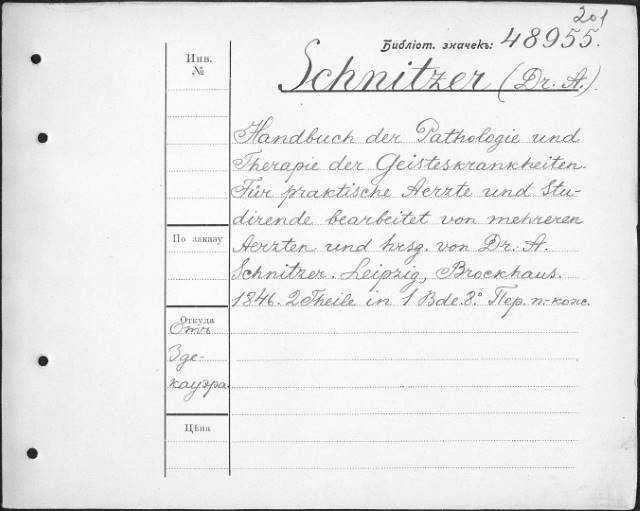 201
Библіот. значекъ: 48955.
Инв.
№
Schnitzer (Dr. A.).
Handbuch der Pathologie und
Therapie der Geisteskrankheiten.
Für praktische Aerzte und Stu-
dirende bearbeitet von mehreren
По заказу
Aerzten und hrsg. von Dr. A.
Schnitzer. Leipzig, Brockhaus.
1846. 2 Theile in 1 Bde. 8°. Пер. п.-кож.
Откуда
Отъ
Зде-
кауэра.
Цѣна